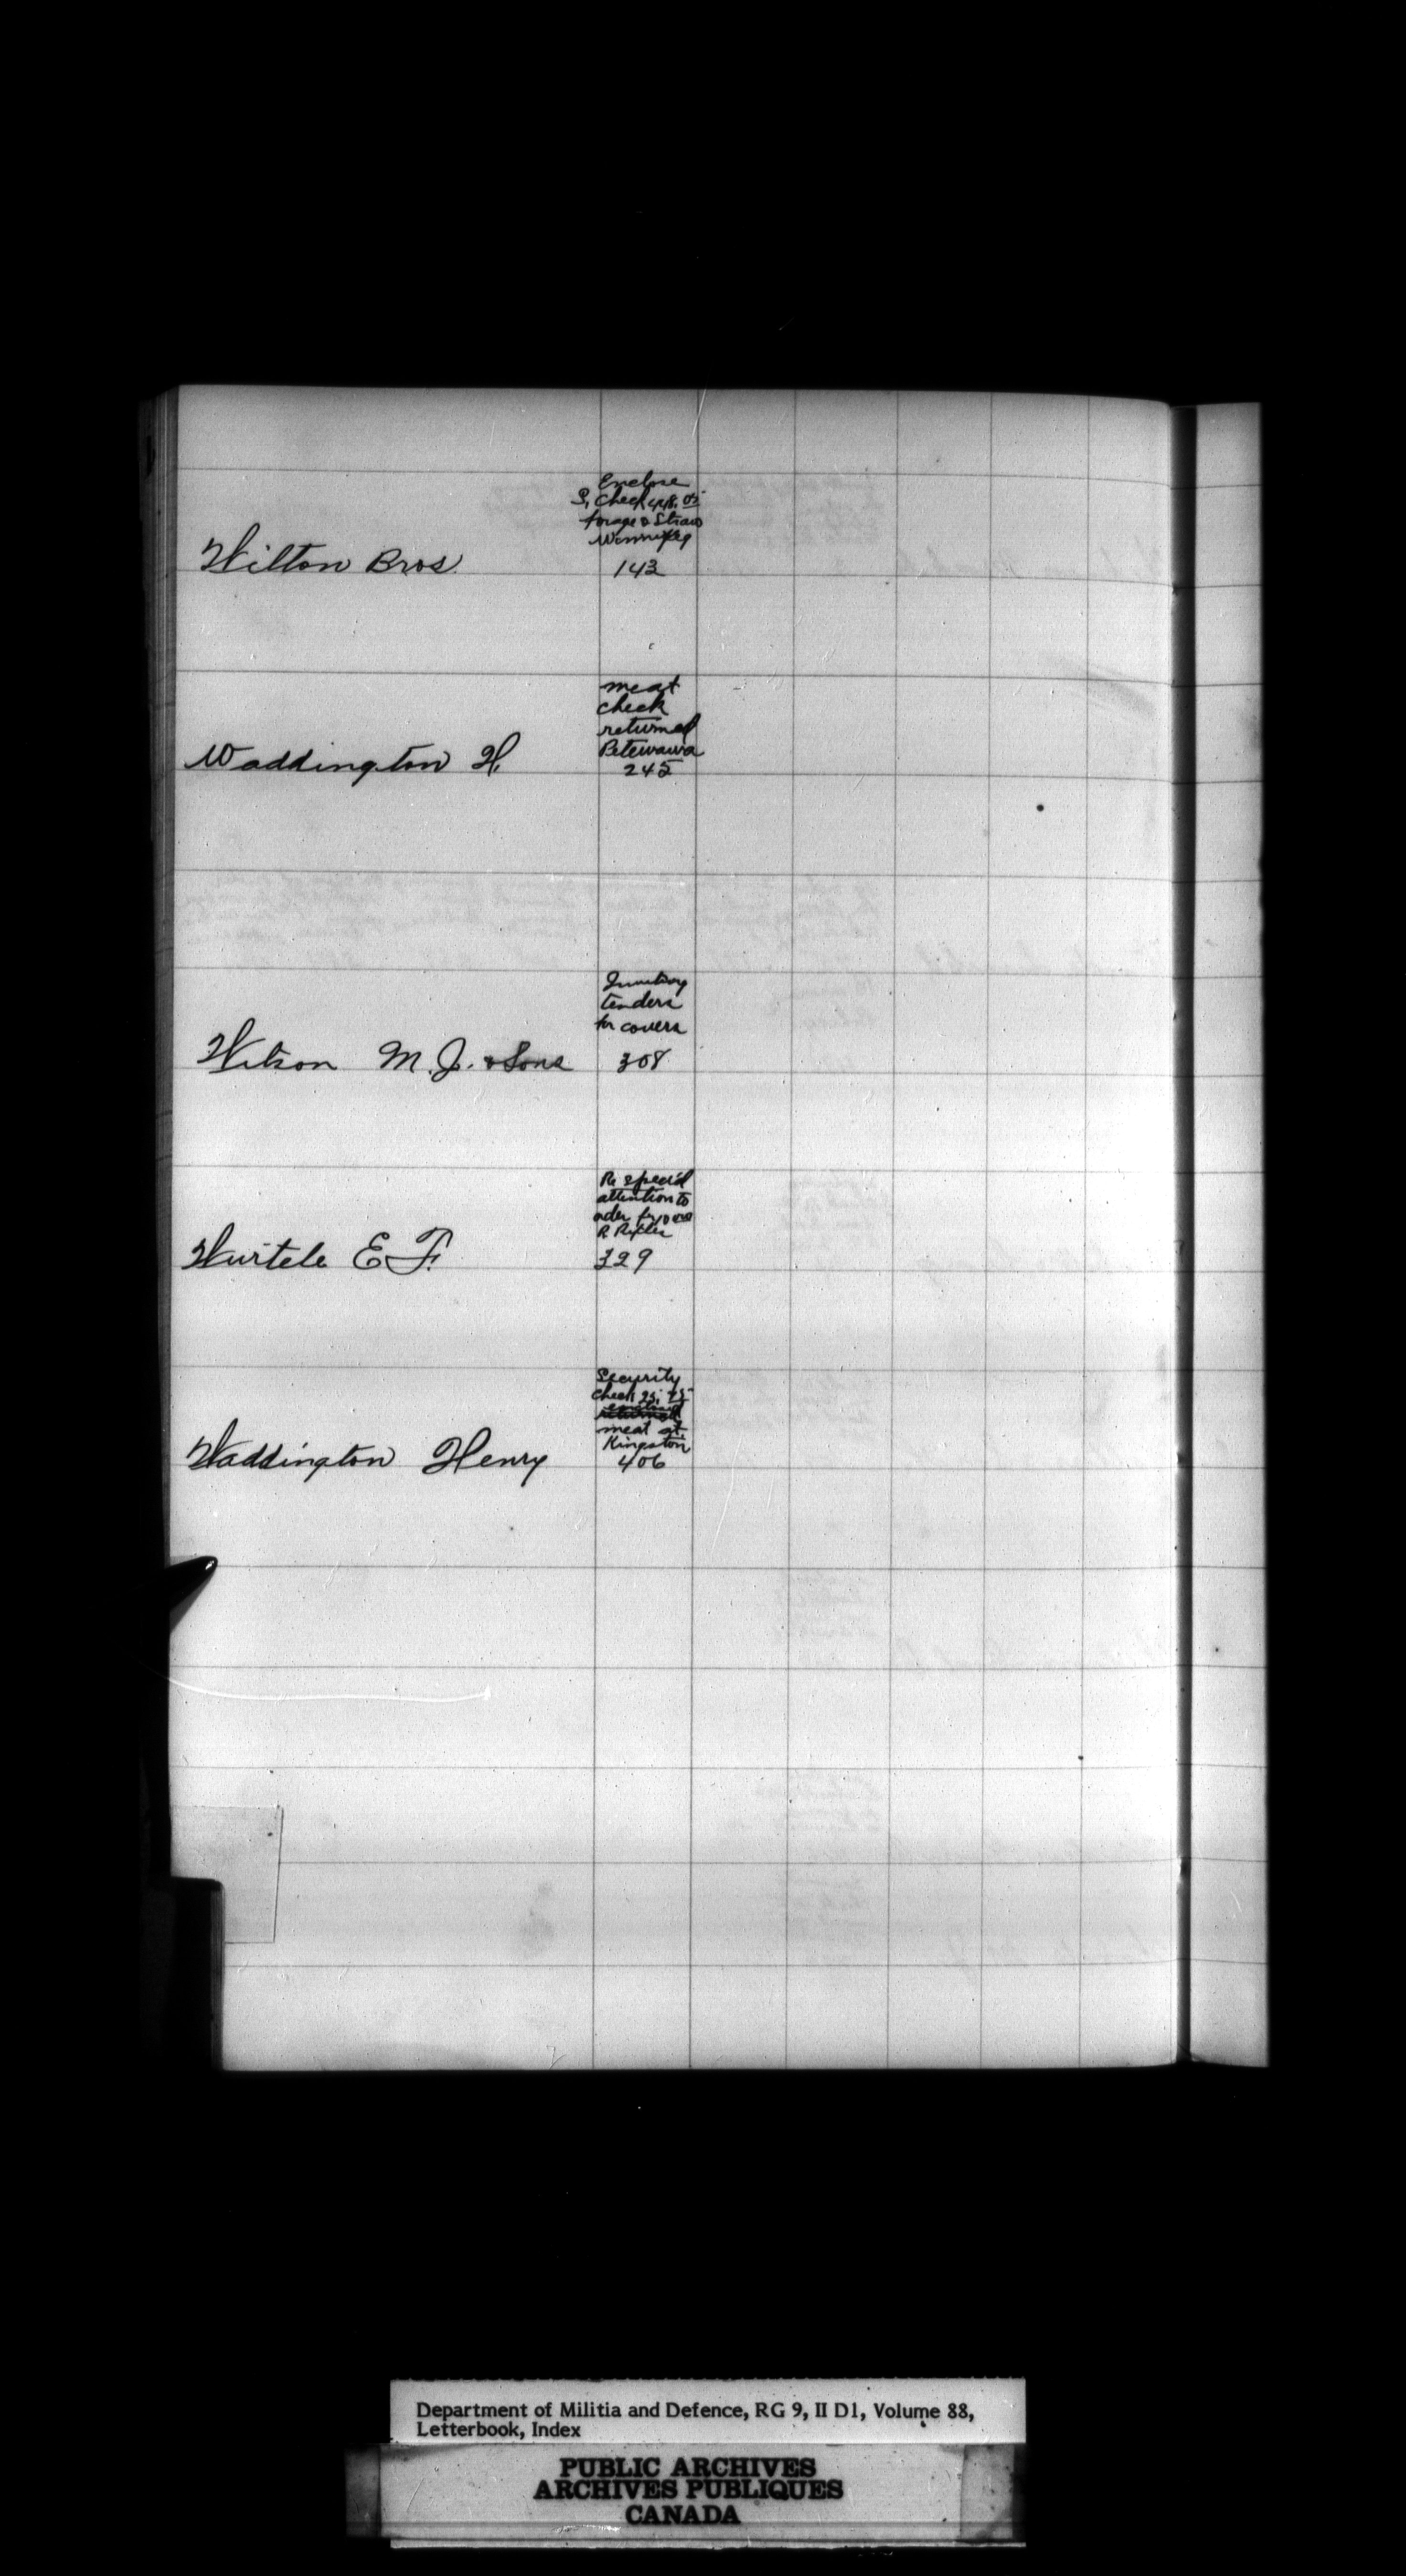 Enclose
S. Check 448.05
forage & Straw
Winnipeg
Wilton Bros. 143
meat
check
returned
Petewawa
Waddington H. 245
Inviting
tenders
for covers
Wilson M. J. & Sons 308
Re special
attention to
order for 10 000
R Rifles
Wurtele E F. 329
Security
Check 25.75
enclosed
returned
meat at
Kingston
Waddington Henry 406
Department of Militia and Defence, RG 9, II D1, Volume 88,
Letterbook, Index
PUBLIC ARCHIVES
ARCHIVES PUBLIQUES
CANADA